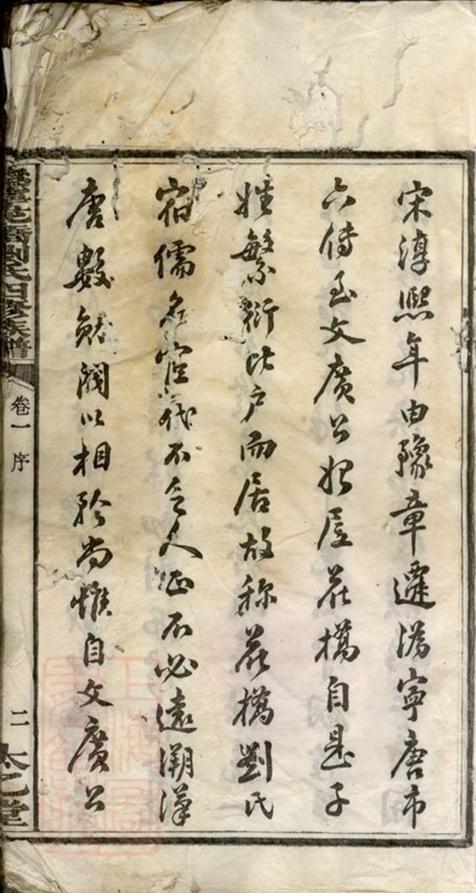 宋淳熙年由豫章遷溈寧唐市
六傳至文廣公始居花橋自是子
姓繁衍比户而居故称花橋劉氏
宿儒名宦代不乏人正不必遠溯漢
唐數勛閥以相矜尚惟自文廣公
花橋劉氏四修族譜
卷一 序
二
太乙堂